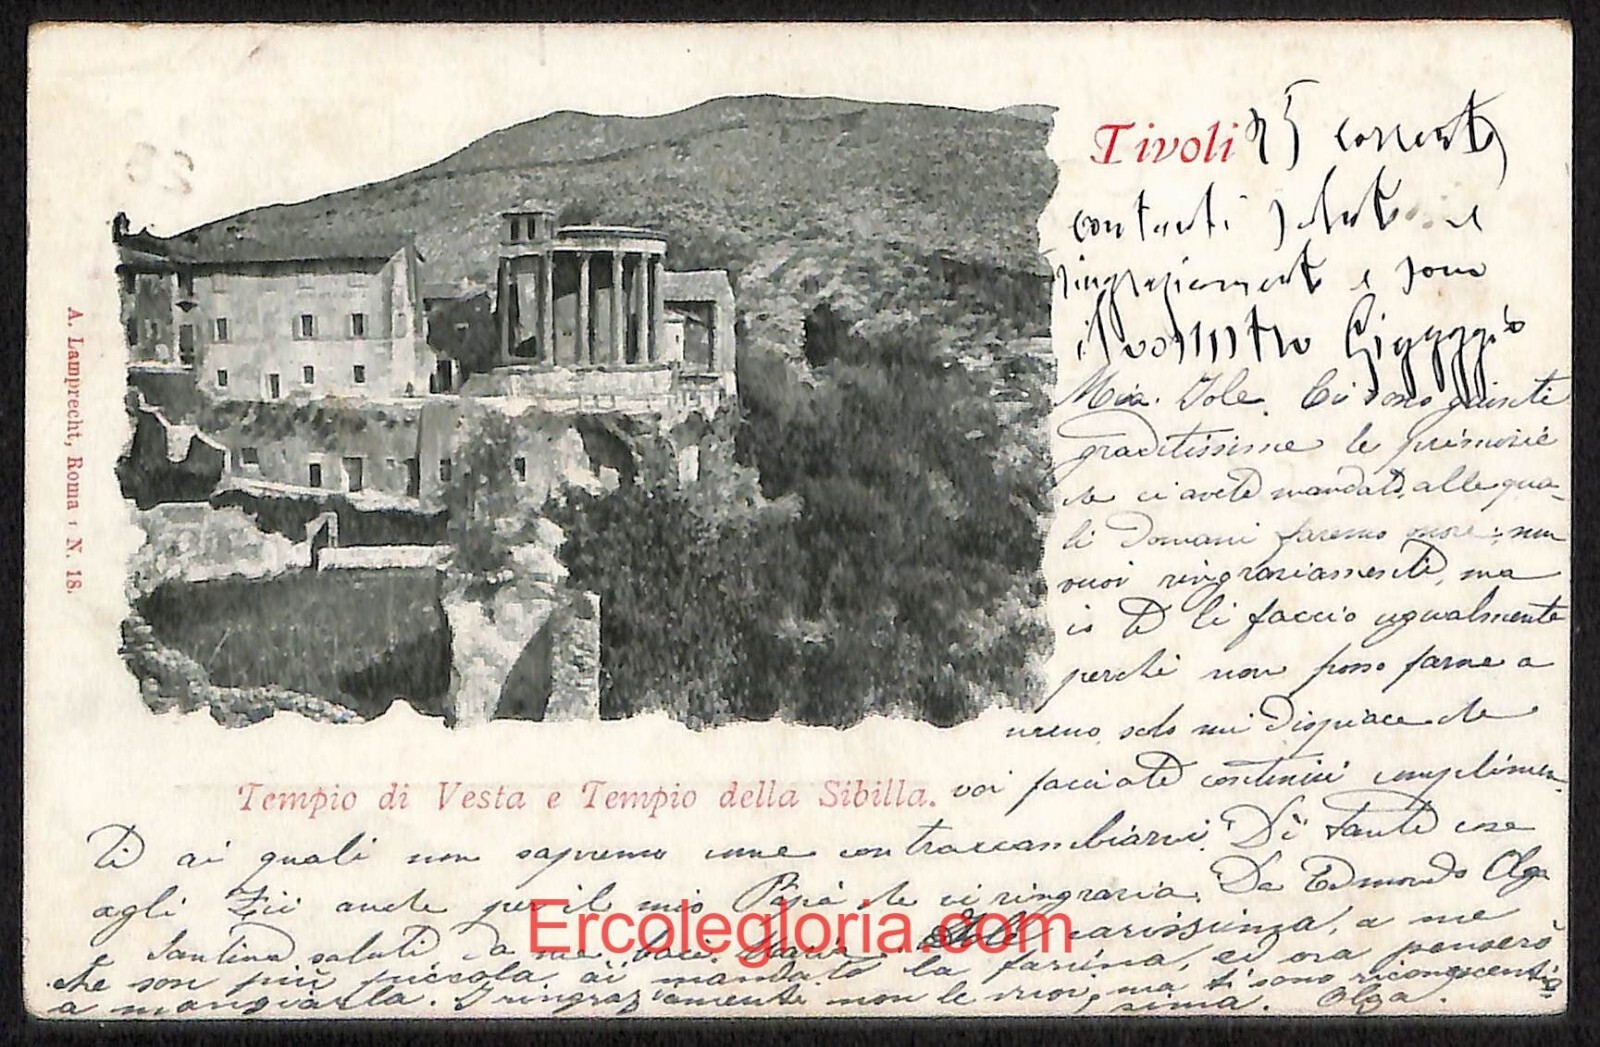 Tivoli 25 corrente
contanti salute e
ringraziamenti e sono
il vostro
Mia Iole. Ci sono giunte
graditissime le primizie
che ci avete mandato, alle qua-
li domani faremo onore; non
vuoi ringraziamenti, ma
io te li faccio ugualmente
perché non posso farne a
meno, solo mi dispiace che
voi facciate continui complimen-
ti ai quali non sapremo come contraccambiarvi. Di' tante cose
agli Zii anche per il mio Papà che vi ringrazia. Da Edmondo Olga
e Santina saluti da me baci. Maria. Iole carissima, a me
che son più piccola ai mandato la farina, ed ora penserò
a mangiarla. I ringraziamenti non le vuoi, ma ti sono riconoscentis-
sima. Olga.
Tempio di Vesta e Tempio della Sibilla.
A. Lamprecht, Roma : N. 18.
Ercolegloria.com